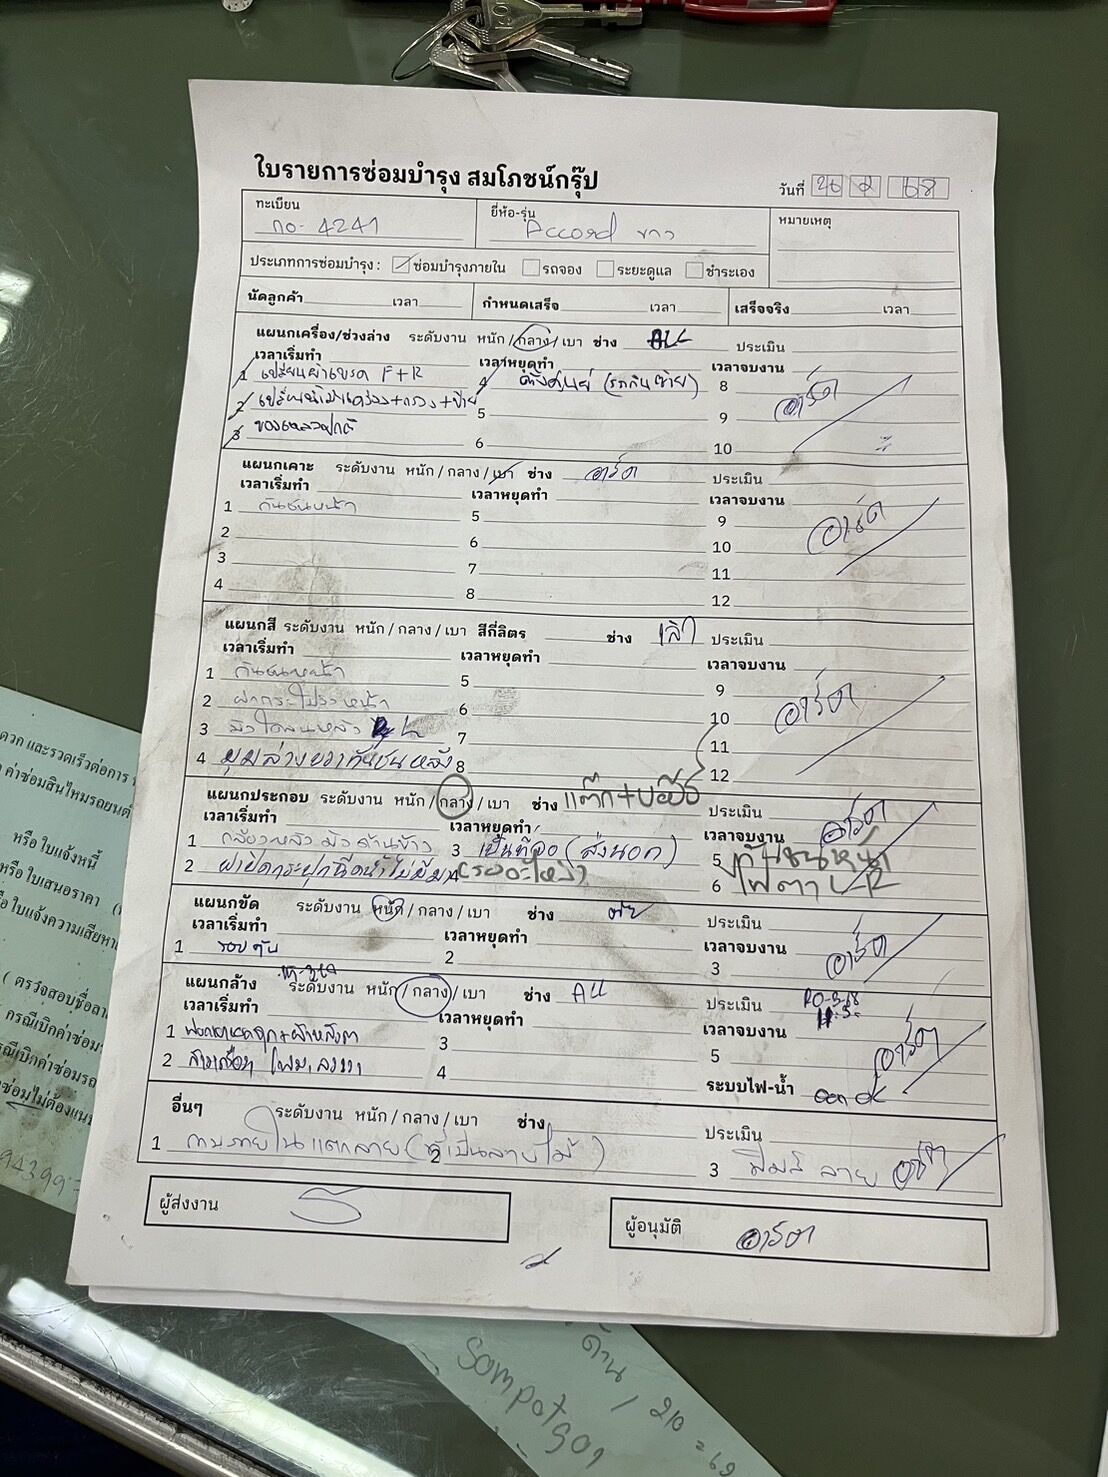 ใบรายการซ่อมบำรุง สมโภชน์กรุ๊ป
วันที่ 26 2 68
ทะเบียน ยี่ห้อ-รุ่น หมายเหตุ
กอ-4241 Accord ขาว
ประเภทการซ่อมบำรุง : ซ่อมบำรุงภายใน รถจอง ระยะดูแล ชำระเอง
นัดลูกค้า เวลา กำหนดเสร็จ เวลา เสร็จจริง เวลา
แผนกเครื่อง/ช่วงล่าง ระดับงาน หนัก / กลาง / เบา ช่าง ALL ประเมิน
เวลาเริ่มทำ เวลาหยุดทำ เวลาจบงาน
1 เปลี่ยนผ้าเบรค F+R 4 ตั้งศูนย์ (รถกินซ้าย) 8
2 เปลี่ยนน้ำมันเครื่อง+กรอง+ป้าย 5 9 อาร์ต
3 ของเหลวปกติ 6 10
แผนกเคาะ ระดับงาน หนัก / กลาง / เบา ช่าง อาร์ต ประเมิน
เวลาเริ่มทำ เวลาหยุดทำ เวลาจบงาน
1 กันชนหน้า 5 9
2 6 10 อาร์ต
3 7 11
4 8 12
แผนกสี ระดับงาน หนัก / กลาง / เบา สีกี่ลิตร ช่าง ประเมิน
เวลาเริ่มทำ เวลาหยุดทำ เวลาจบงาน
1 กันชนหน้า 5 9
2 ฝากระโปรงหน้า 6 10 อาร์ต
3 หลัง L 7 11
4 มุมล่างขวากันชนหลัง 8 12
แผนกประกอบ ระดับงาน หนัก / กลาง / เบา ช่าง ประเมิน อาร์ต
เวลาเริ่มทำ เวลาหยุดทำ เวลาจบงาน
1 กล้องหลังมัวด้านขวา 3 (ส่งนอก) 5 กันชนหน้า
2 ฝาปิดกระปุกฉีดน้ำไม่มี 4 (รออะไหล่) 6 ไฟตา L-R
แผนกขัด ระดับงาน หนัก / กลาง / เบา ช่าง ประเมิน
เวลาเริ่มทำ เวลาหยุดทำ เวลาจบงาน
1 รอบคัน 2 3 อาร์ต
แผนกล้าง ระดับงาน หนัก / กลาง / เบา ช่าง ALL ประเมิน
เวลาเริ่มทำ เวลาหยุดทำ เวลาจบงาน
1 3 5 อาร์ต
2 4 ระบบไฟ-น้ำ OK
อื่นๆ ระดับงาน หนัก / กลาง / เบา ช่าง ประเมิน
1 ภายในแตกลาย ( เป็นลายไม้ ) 2 3 ฟิมส์ ลาย อาร์ต
ผู้ส่งงาน ผู้อนุมัติ อาร์ต
ดวก และรวดเร็วต่อการ
ค่าซ่อมสินไหมรถยนต์
หรือ ใบแจ้งหนี้
หรือใบเสนอราคา
ใบแจ้งความเสียหาย
( ตรวจสอบชื่อ
กรณีเบิกค่าซ่อม
กรณีเบิกค่าซ่อมรถ
ซ่อมไม่ต้องแนบ
94399
ด้าน / 210 = 62
Sompotgon